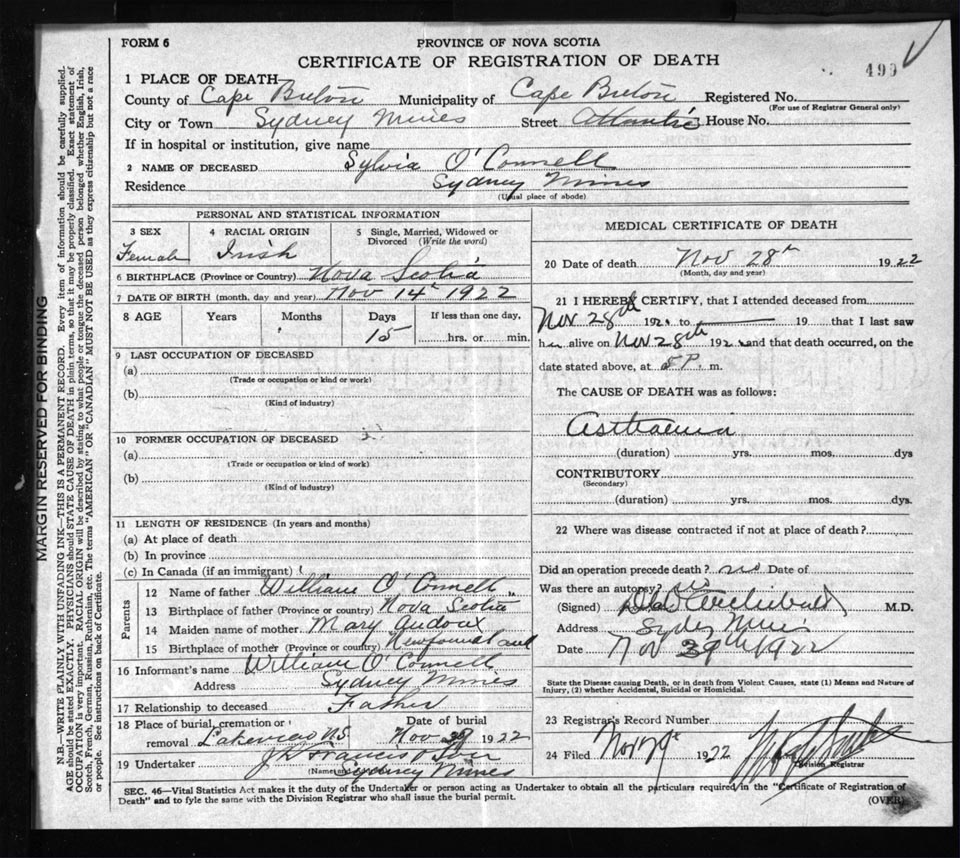 FORM 6
PROVINCE OF NOVA SCOTIA
CERTIFICATE OF REGISTRATION OF DEATH
499
1 PLACE OF DEATH
County of Cape Breton Municipality of Cape Breton Registered No.
(For use of Registrar General only)
City or Town Sydney Mines Street Atlantic House No.
If in hospital or institution, give name
2 NAME OF DECEASED Sylvia O'Connell
Residence Sydney Mines
(Usual place of abode)
PERSONAL AND STATISTICAL INFORMATION
3 SEX 4 RACIAL ORIGIN 5 Single, Married, Widowed or Divorced (Write the word)
Female Irish
6 BIRTHPLACE (Province or Country) Nova Scotia
7 DATE OF BIRTH (month, day and year) Nov 14th 1922
8 AGE Years Months Days If less than one day,
15 hrs. or min.
9 LAST OCCUPATION OF DECEASED
(a)
(Trade or occupation or kind or work)
(b)
(Kind of industry)
10 FORMER OCCUPATION OF DECEASED
(a)
(Trade or occupation or kind of work)
(b)
(Kind of industry)
11 LENGTH OF RESIDENCE (In years and months)
(a) At place of death
(b) In province
(c) In Canada (if an immigrant)
Parents
12 Name of father William O'Connell
13 Birthplace of father (Province or country) Nova Scotia
14 Maiden name of mother Mary Audoux
15 Birthplace of mother (Province or country) Newfoundland
16 Informant's name William O'Connell
Address Sydney Mines
17 Relationship to deceased Father
18 Place of burial, cremation or Date of burial
removal Lakeview N.S. Nov 1922
19 Undertaker Francis & Son
(Name and Sydney Mines
MEDICAL CERTIFICATE OF DEATH
20 Date of death Nov 28th 1922
(Month, day and year)
21 I HEREBY CERTIFY, that I attended deceased from
Nov 28th 192 to 19 that I last saw
h alive on Nov 28th 192 and that death occurred, on the
date stated above, at 5 P. m.
The CAUSE OF DEATH was as follows:
Asthaenia
(duration) yrs. mos. dys
CONTRIBUTORY
(Secondary)
(duration) yrs. mos. dys.
22 Where was disease contracted if not at place of death?
Did an operation precede death? no Date of
Was there an autopsy? no
(Signed) Archibald M.D.
Address Sydney Mines
Date Nov 29th 1922
State the Disease causing Death, or in death from Violent Causes, state (1) Means and Nature of
Injury, (2) whether Accidental, Suicidal or Homicidal.
23 Registrar's Record Number
24 Filed Nov 29th 1922
Division Registrar
SEC. 46—Vital Statistics Act makes it the duty of the Undertaker or person acting as Undertaker to obtain all the particulars required in the "Certificate of Registration of
Death" and to fyle the same with the Division Registrar who shall issue the burial permit.
(OVER)
MARGIN RESERVED FOR BINDING
N.B.—WRITE PLAINLY WITH UNFADING INK—THIS IS A PERMANENT RECORD. Every item of information should be carefully supplied.
AGE should be stated EXACTLY. PHYSICIANS should STATE CAUSE OF DEATH in plain terms, so that it may be properly classified. Exact statement of
OCCUPATION is very important. RACIAL ORIGIN will be described by stating to what people or tongue the deceased person belonged whether English, Irish,
Scotch, French, German, Russian, Ruthenian, etc. The terms "AMERICAN" OR "CANADIAN" MUST NOT BE USED as they express citizenship but not a race
or people. See instructions on back of Certificate.